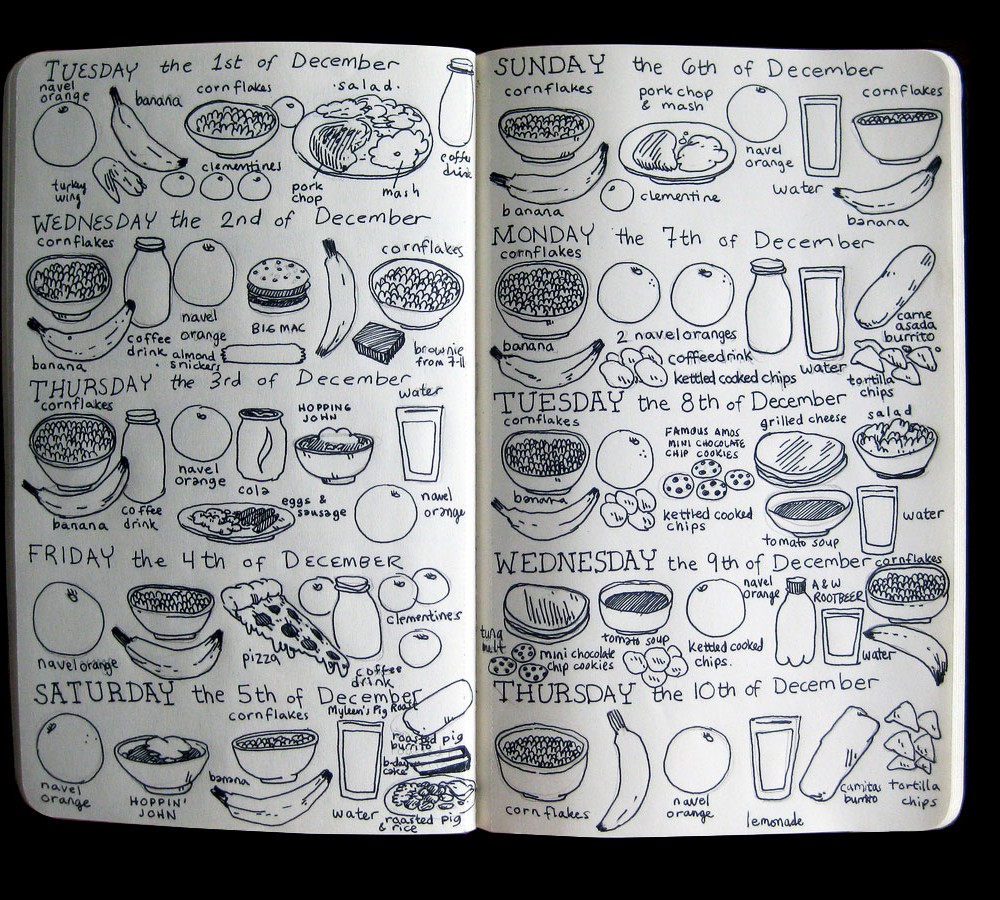 TUESDAY the 1st of December
navel
orange
banana
cornflakes
·salad·
turkey
wing
clementines
pork
chop
mash
coffee
drink
WEDNESDAY the 2nd of December
cornflakes
banana
coffee
drink
navel
orange
almond
snickers
BIG MAC
cornflakes
brownie
from 7-11
THURSDAY the 3rd of December
cornflakes
banana
coffee
drink
navel
orange
cola
HOPPING
JOHN
water
eggs &
sausage
navel
orange
FRIDAY the 4th of DECEMBER
navel orange
pizza
coffee
drink
clementines
SATURDAY the 5th of December
navel
orange
HOPPIN'
JOHN
cornflakes
banana
water
Myleen's Pig Roast
roasted pig
burrito
b-day
cake
roasted pig
& rice
SUNDAY the 6th of December
cornflakes
banana
pork chop
& mash
clementine
navel
orange
water
cornflakes
banana
MONDAY the 7th of December
cornflakes
banana
2 navel oranges
coffee drink
kettled cooked chips
water
carne
asada
burrito
tortilla
chips
TUESDAY the 8th of December
cornflakes
banana
FAMOUS AMOS
MINI CHOCOLATE
CHIP COOKIES
kettled cooked
chips
grilled cheese
tomato soup
salad
water
WEDNESDAY the 9th of December
tuna
melt
mini chocolate
chip cookies
tomato soup
navel
orange
kettled cooked
chips.
A&W
ROOTBEER
water
cornflakes
THURSDAY the 10th of December
cornflakes
navel
orange
lemonade
carnitas
burrito
tortilla
chips